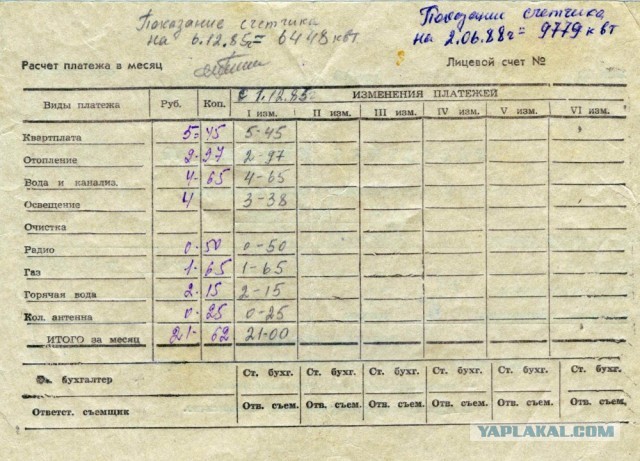 Показание счетчика
на 6.12.85г= 6448 квт
Показании счетчика
на 2.06.88г= 9779 квт
Расчет платежа в месяц
Лицевой счет №
Виды платежа Руб. Коп. с 1.12.85г ИЗМЕНЕНИЯ ПЛАТЕЖЕЙ
I изм. II изм. III изм. IV изм. V изм. VI изм.
Квартплата 5= 45 5-45
Отопление 2. 97 2-97
Вода и канализ. 4. 65 4-65
Освещение 4 3-38
Очистка
Радио 0. 50 0-50
Газ 1. 65 1-65
Горячая вода 2. 15 2-15
Кол. антенна 0. 25 0-25
ИТОГО за месяц 21- 62 21-00
бухгалтер Ст. бухг. Ст. бухг. Ст. бухг. Ст. бухг. Ст. бухг. Ст. бухг.
Ответст. съемщик Отв. съем. Отв. съем. Отв. съем. Отв. съем. Отв. съем. Отв. съем.
YAPLAKAL.COM